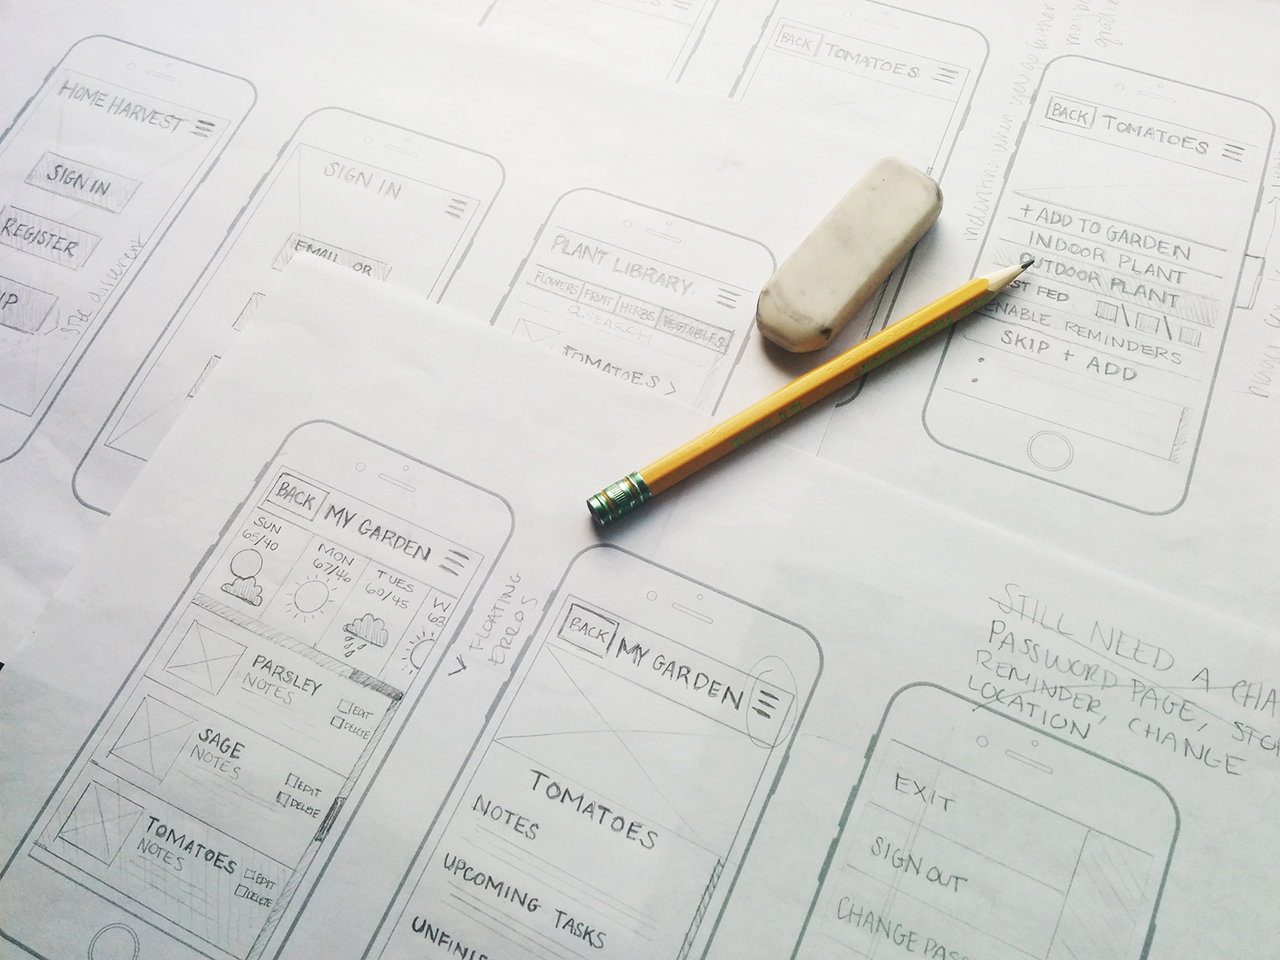 HOME HARVEST
SIGN IN
REGISTER
SIGN IN
EMAIL OR
PLANT LIBRARY
FLOWERS FRUIT HERBS VEGETABLES
SEARCH
TOMATOES >
BACK TOMATOES
BACK TOMATOES
+ ADD TO GARDEN
INDOOR PLANT
OUTDOOR PLANT
FED
ENABLE REMINDERS
SKIP + ADD
BACK MY GARDEN
SUN
65/40
MON
67/46
TUES
60/45
W
63
PARSLEY
NOTES
EDIT
DELETE
SAGE
NOTES
EDIT
DELETE
TOMATOES
NOTES
EDIT
DELETE
FLOATING
BACK MY GARDEN
TOMATOES
NOTES
UPCOMING TASKS
STILL NEED A
PASSWORD PAGE,
REMINDER, CHANGE
LOCATION
EXIT
SIGN OUT
CHANGE